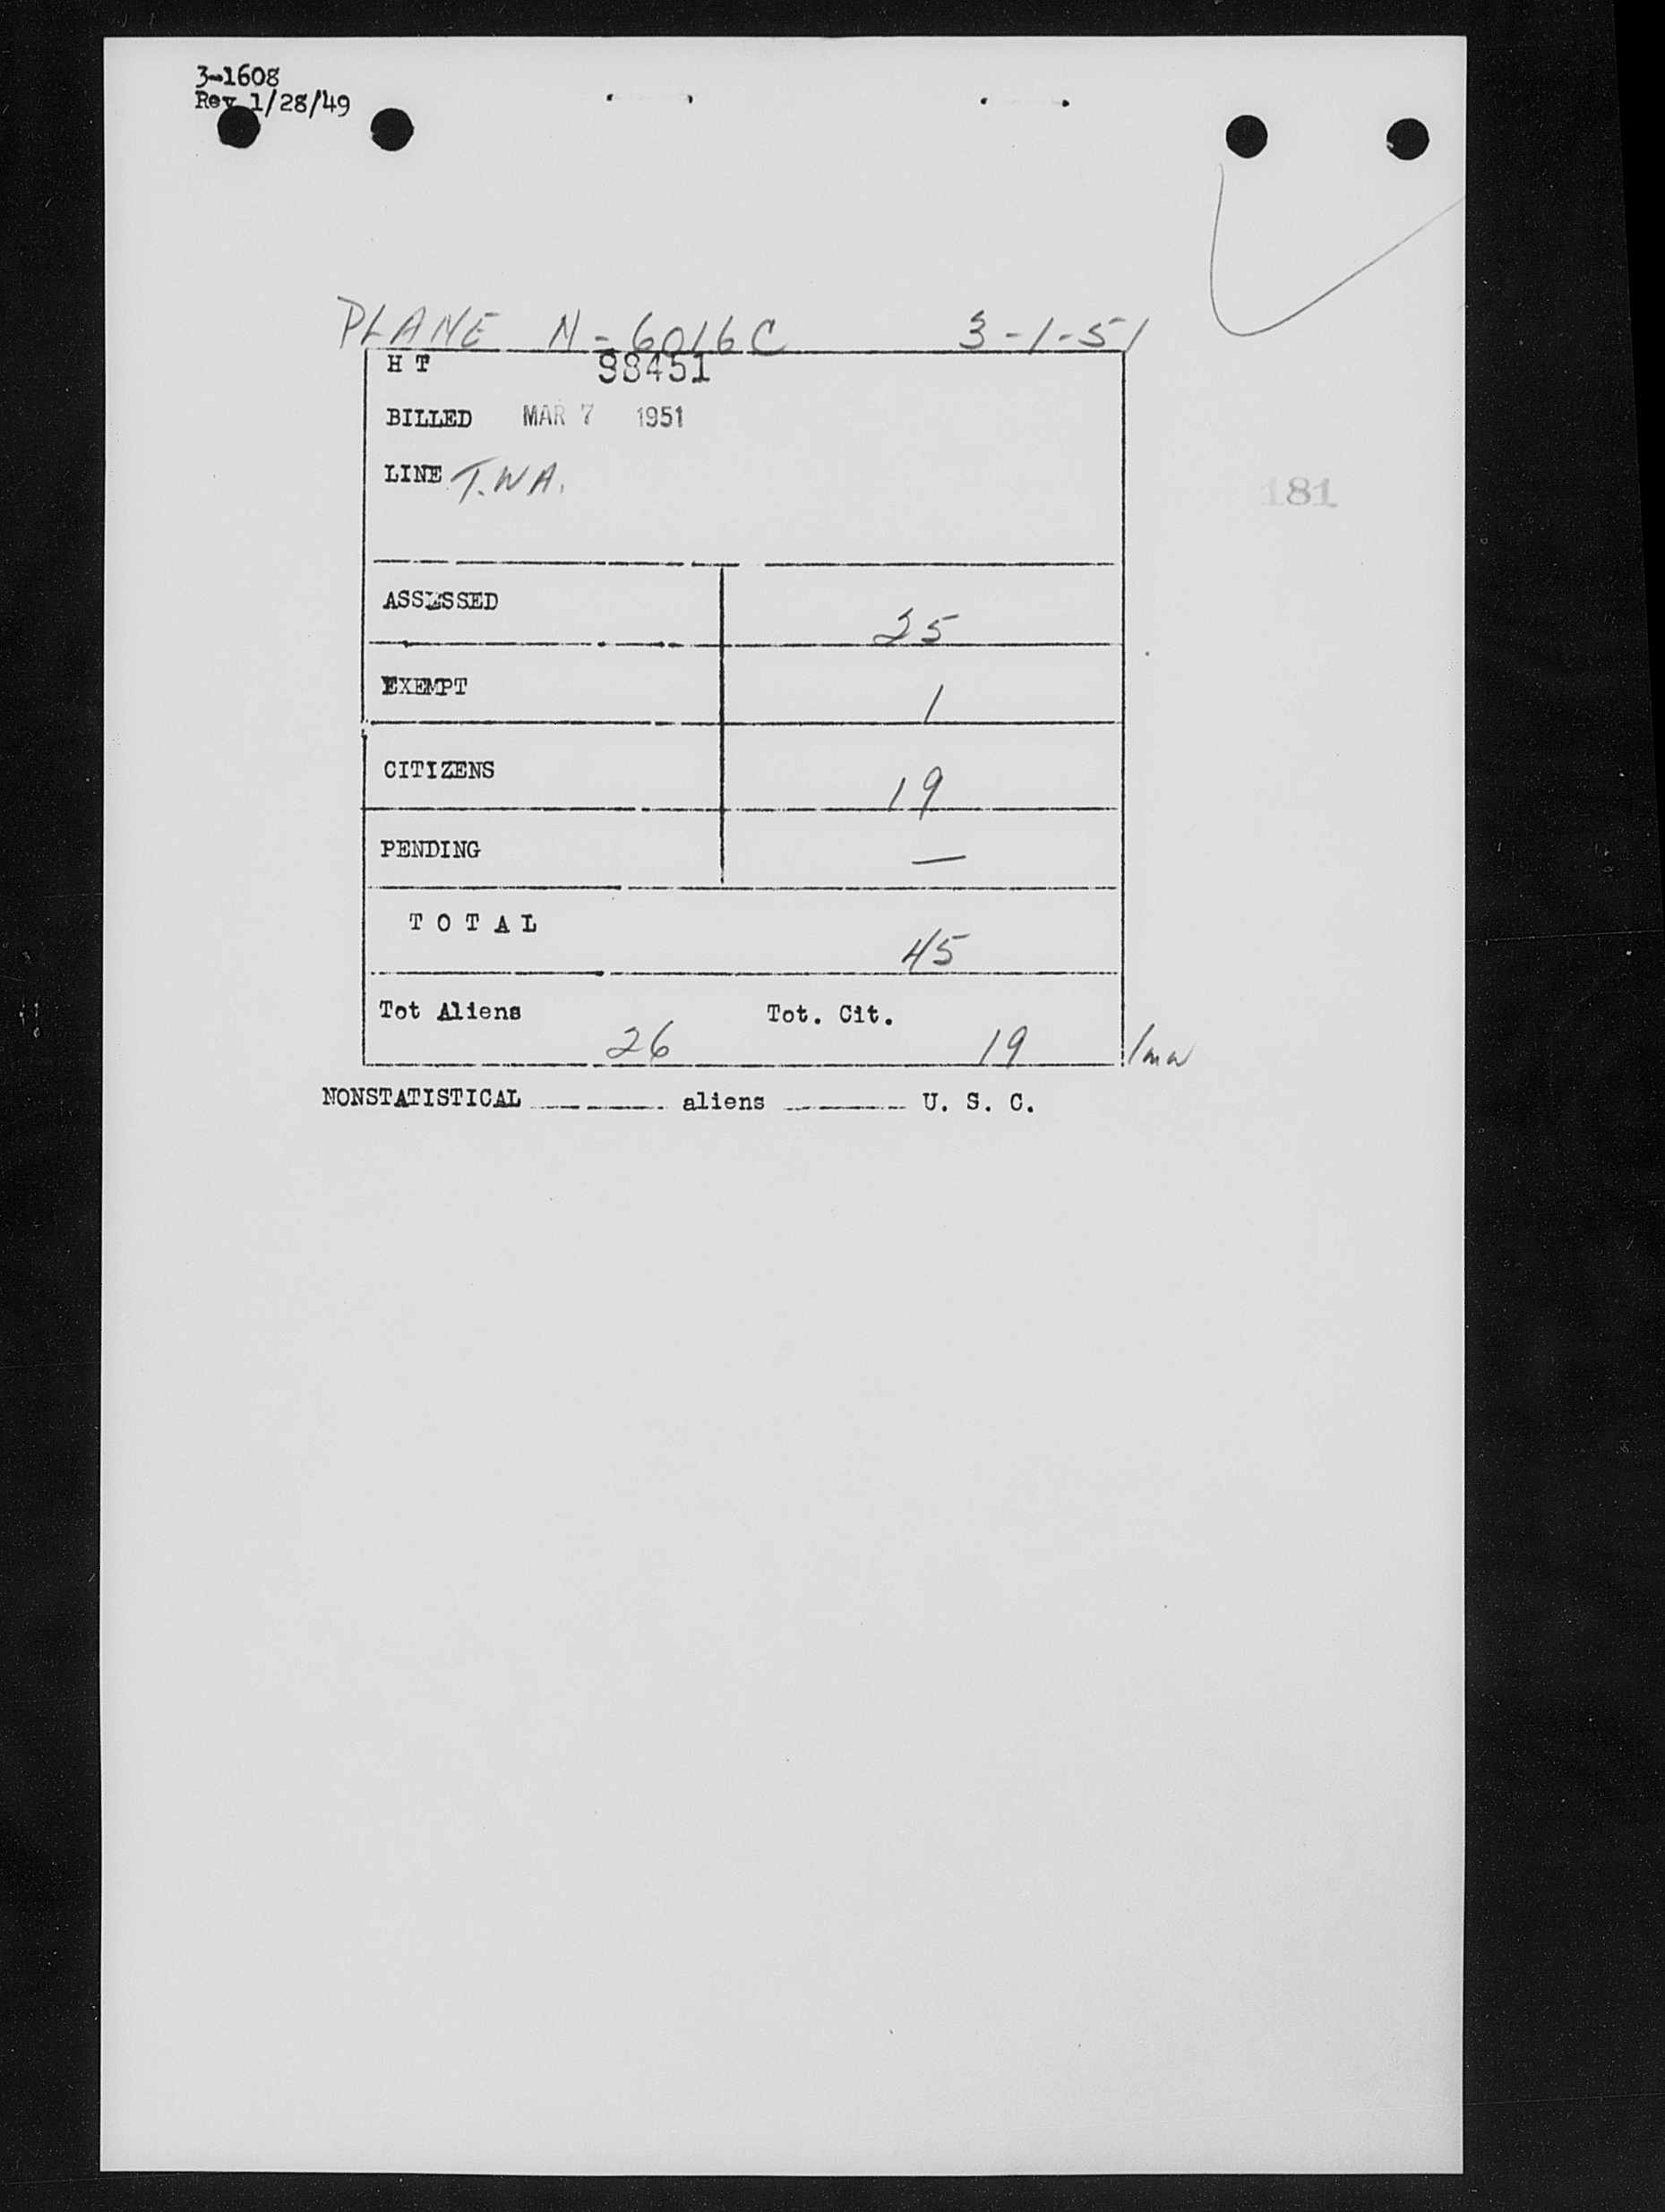 3-1608
Rev 1/28/49
PLANE N-6016C 3-1-51
H T 98451
BILLED MAR 7 1951
LINE T.W.A.
181
ASSESSED 25
EXEMPT 1
CITIZENS 19
PENDING —
T O T A L 45
Tot Aliens 26 Tot. Cit. 19
NONSTATISTICAL ______ aliens ______ U. S. C.